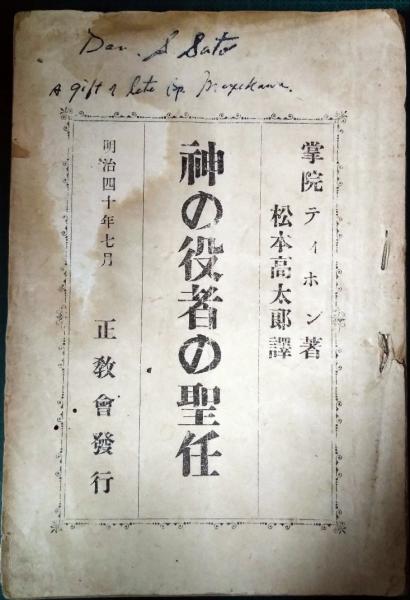 Dan. S Sato
A gift of late
掌院ティホン著
松本高太郎譯
神の役者の聖任
明治四十年七月
正教會發行